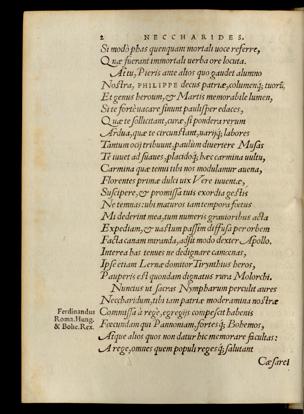 2 NECCHARIDES.
Si modò phas quenquam mortali uoce referre,
Quæ fuerant immortali uerba ore locuta.
At tu, Pieris ante alios quo gaudet alumno
Nostra, PHILIPPE decus patriæ, columenq; tuorũ,
Et genus heroum, & Martis memorabile lumen,
Si te fortè uacare sinunt paulisper edaces,
Quæ te sollicitant, curæ, si pondera rerum
Ardua, quæ te circunstant, uarijq; labores
Tantum ocij tribuunt, paulùm diuertere Musas
Te iuuet ad suaues, placidoq; hæc carmina uultu,
Carmina quæ tenui tibi nos modulamur auena,
Florentes primæ dulci uix Vere iuuentæ,
Suscipere, & promissa tuis exordia gestis
Ne temnas: ubi maturos iam tempora fœtus
Mi dederint mea, tum numeris grauioribus acta
Expediam, & uastum passim diffusa per orbem
Facta canam miranda, adsit modò dexter Apollo.
Interea has tenues ne dedignare camœnas,
Ipse etiam Lernæ domitor Tirynthius heros,
Pauperis est quondam dignatus rura Molorchi.
Nuncius ut sacras Nympharum perculit aures
Neccharidum, tibi iam patriæ moderamina nostræ
Ferdinandus Roma. Hung. & Bohe. Rex.
Commissa à rege, egregijs compescit habenis
Fœcundam qui Pannoniam, fortesq; Bohemos,
Atque alios quos non datur hic memorare facultas:
A rege, omnes quem populi regesq; salutant
Cæsare